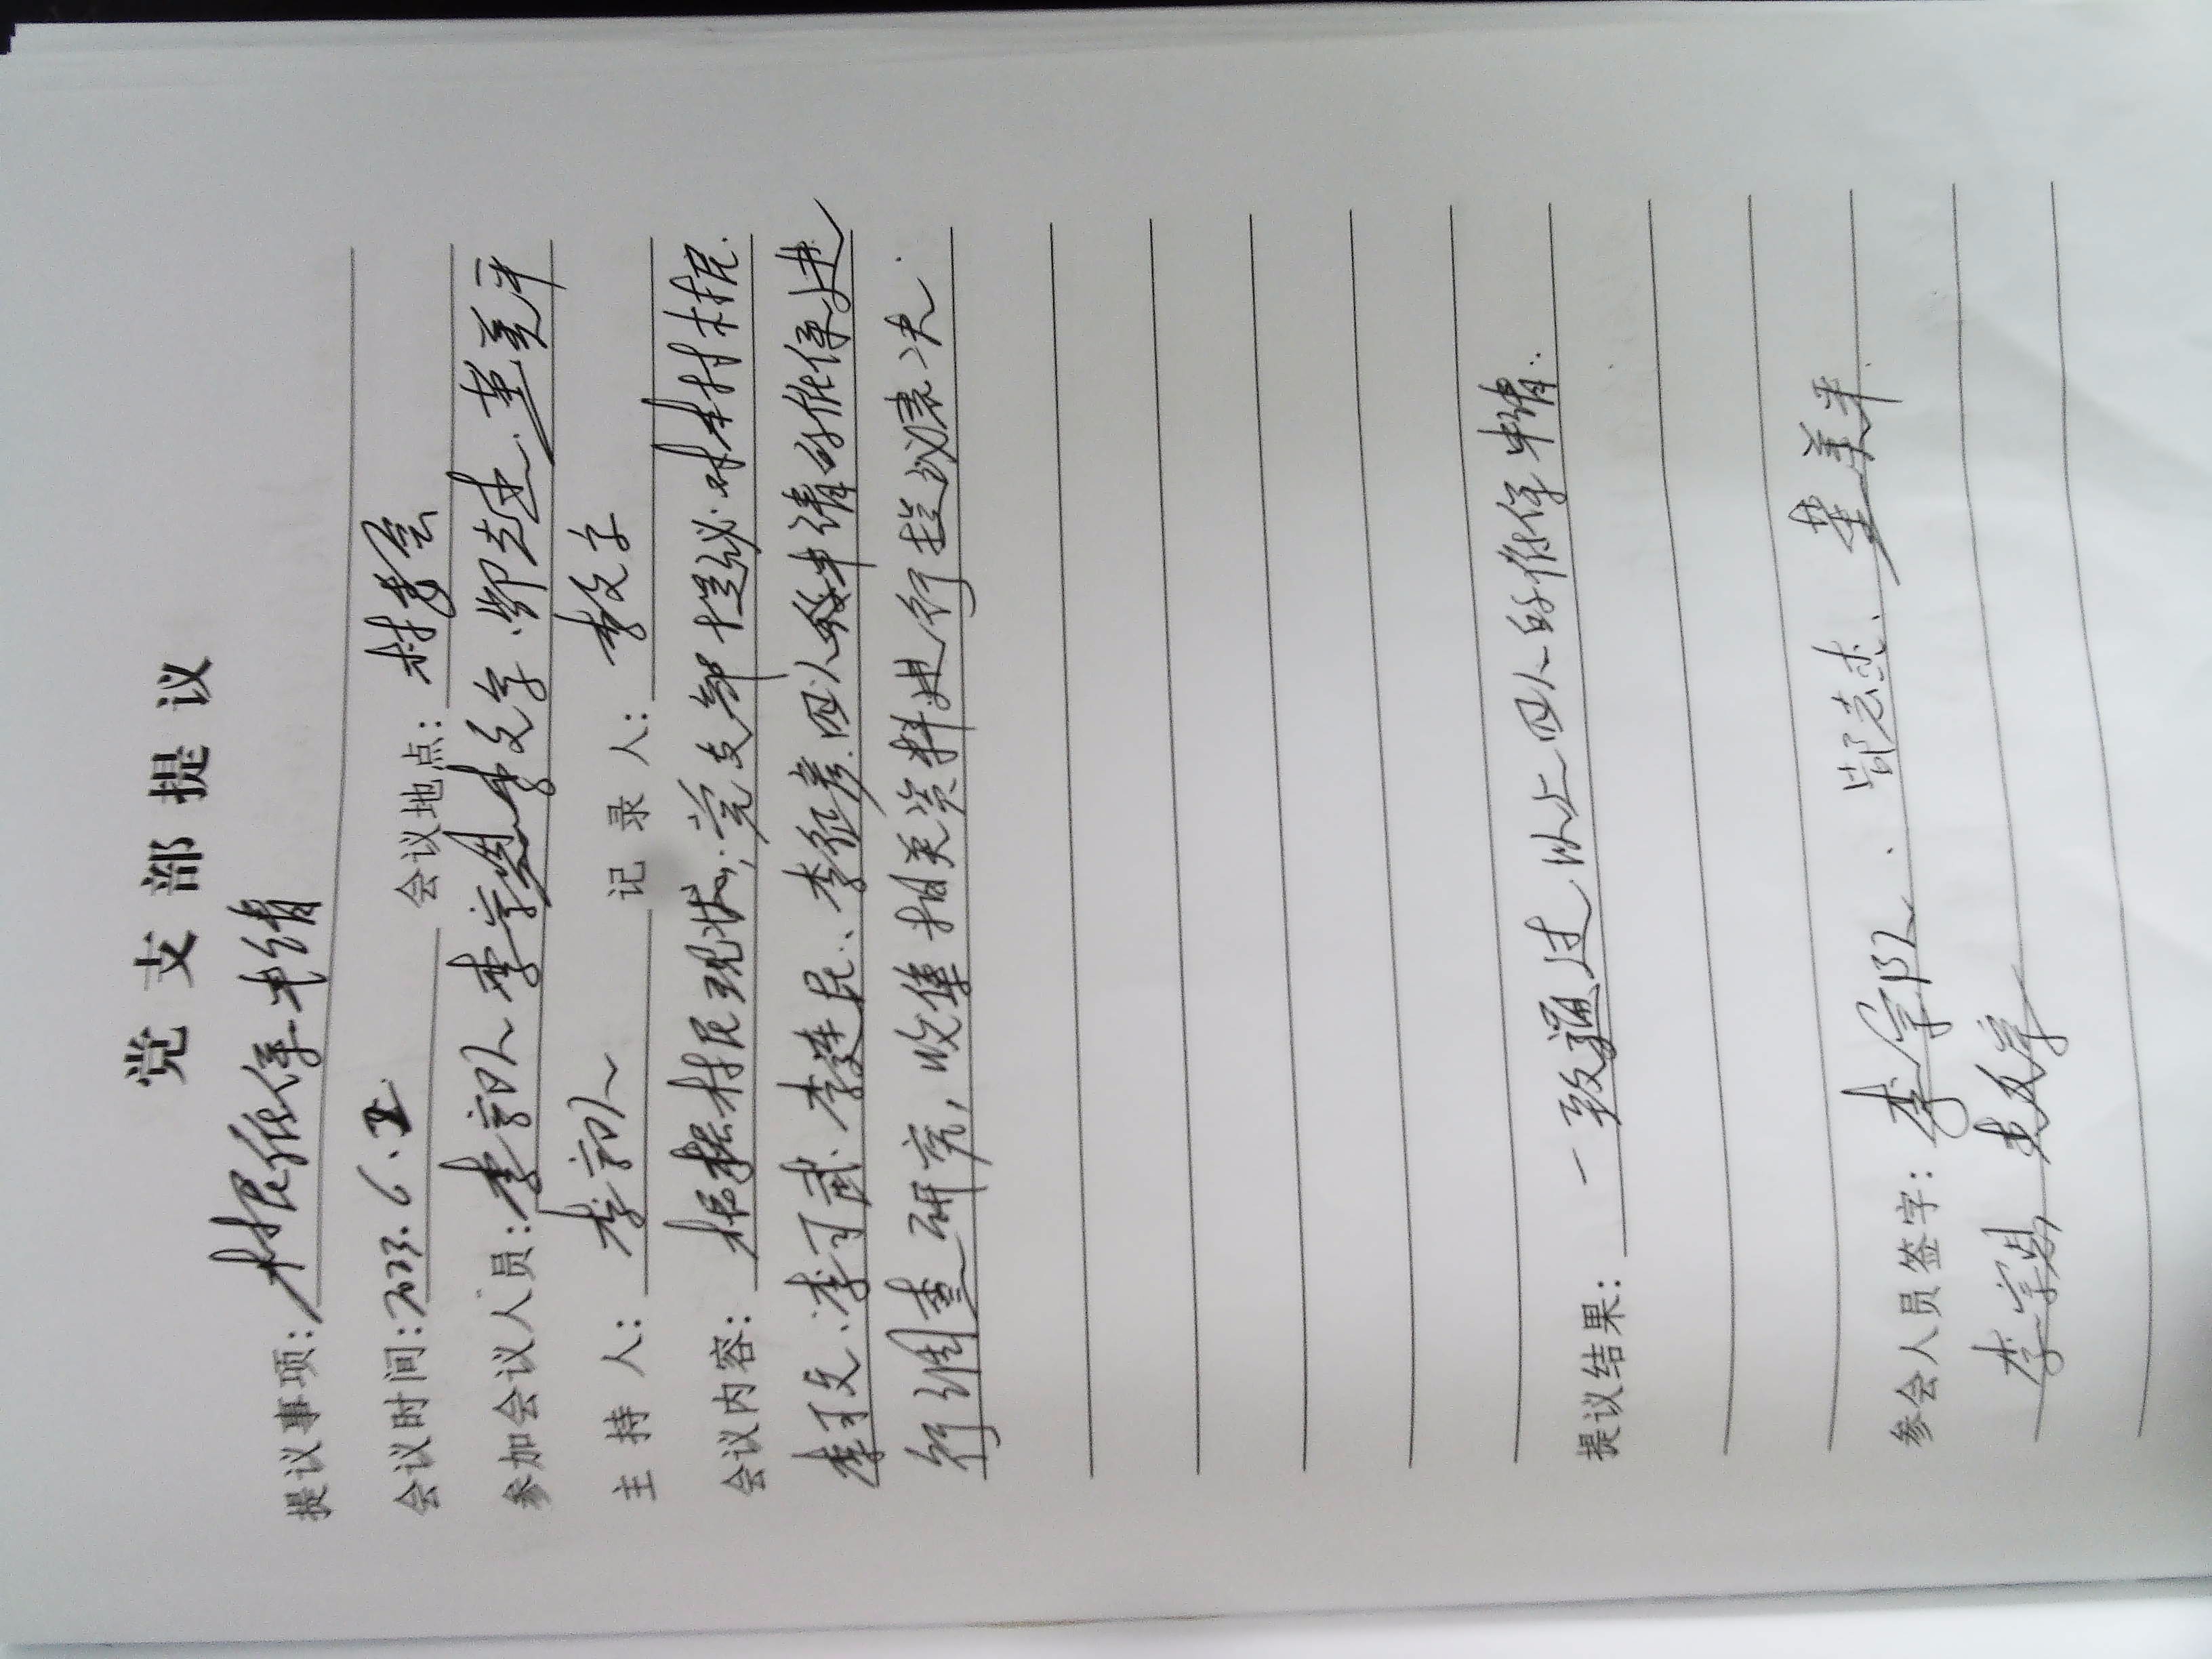 党支部提议
提议事项：村民低保申请
会议时间：2023.6.2 会议地点：村委会
参加会议人员：李宗队 李宗恩 李文字、郜志杰、董美平
主持人：李宗队 记录人：李文字
会议内容：根据村民现状，党支部提议对本村村民
李可文、李可武、李连民、李征彦四人所申请的低保进
行调查研究，收集相关资料进行提议表决
提议结果：一致通过以上四人的低保申请.
参会人员签字：李宗队、郜志杰、董美平
李宗恩 李文字